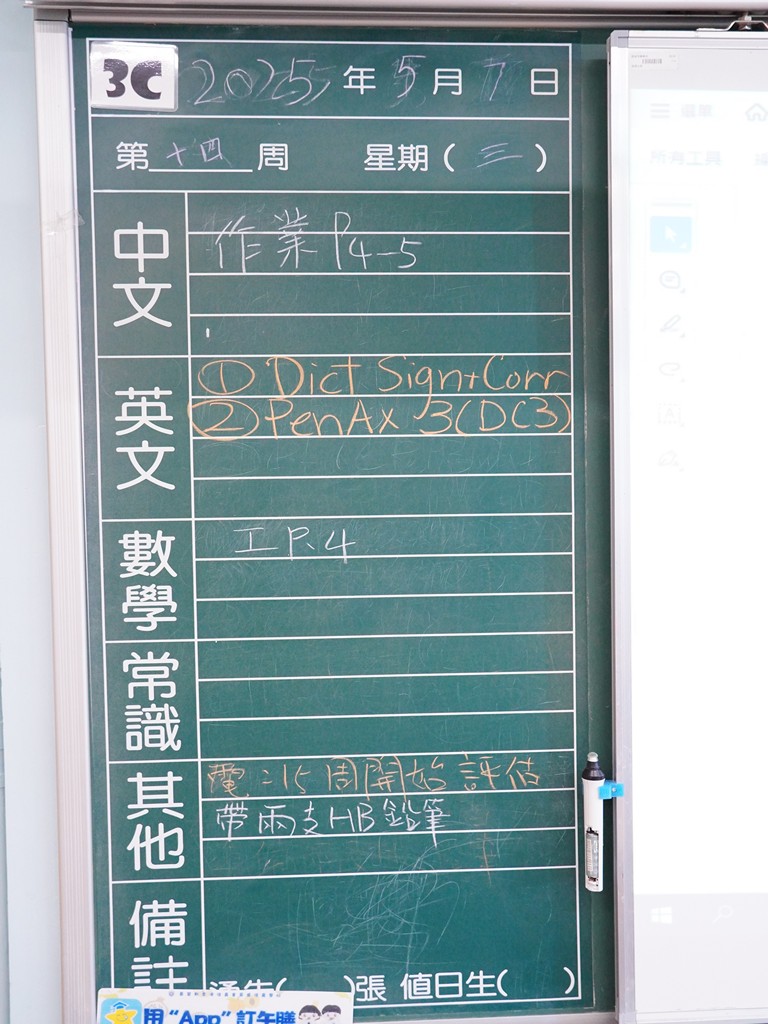 3C 2025年5月7日
第十四周 星期(三)
中文
作業 P4-5
英文
① Dict Sign+Corr
② PenAx 3(DC3)
數學
工 P.4
常識
其他
電:15周開始評估
帶兩支HB鉛筆
備註
通告( )張 值日生( )
用“App”訂午膳
所有工具